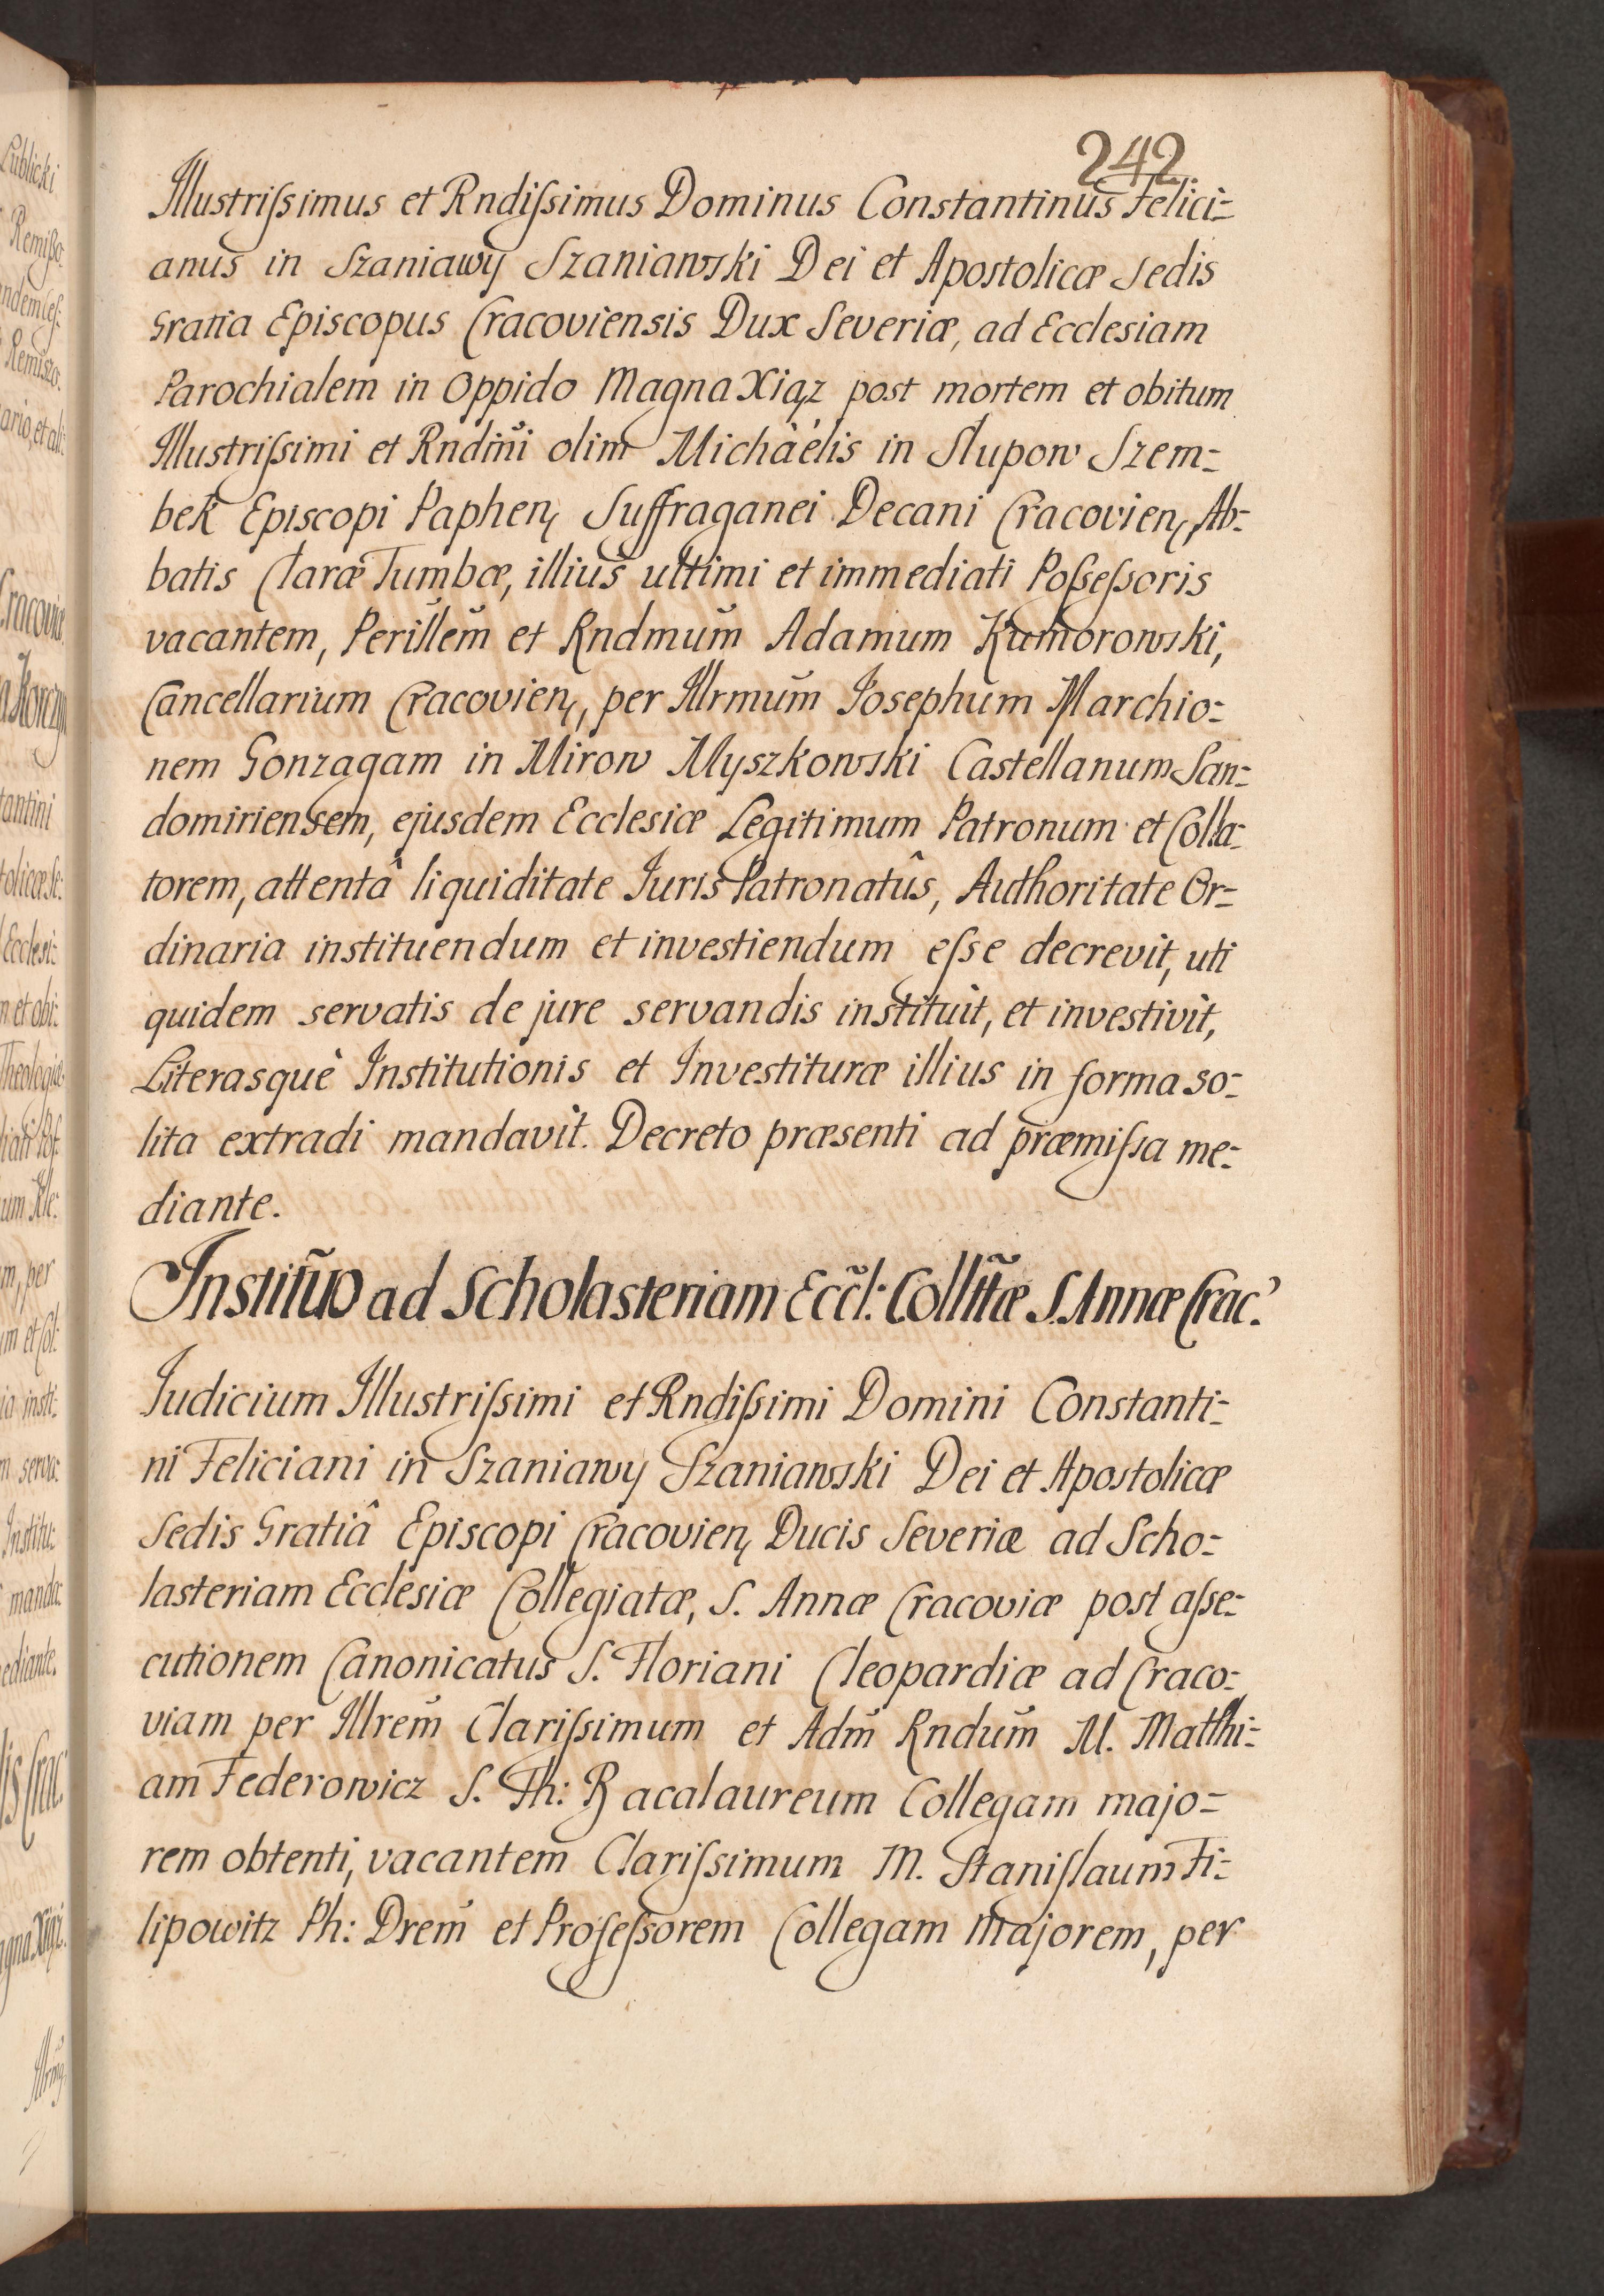 242
Illustriſsimus et Rndiſsimus Dominus Constantinus Felici=
anus in Szaniawy Szaniawski Dei et Apostolicæ Sedis
Gratia Episcopus Cracoviensis Dux Severiæ, ad Ecclesiam
Parochialem in Oppido Magna Xiąz post mortem et obitum
Illustriſsimi et Rndm̃i olim Michàélis in Slupow Szem=
bek Episcopi Paphen, Suffraganei Decani Cracovien, Ab=
batis Claræ Tumbæ, illius ultimi et immediati Poſseſsoris
vacantem, Perillem̃ et Rndmum̃ Adamum Komorowski,
Cancellarium Cracovien, per Illrmum̃ Josephum Marchio=
nem Gonzagam in Mirow Myszkowski Castellanum San=
domiriensem, ejusdem Ecclesiæ Legitimum Patronum et Colla=
torem, attentâ liquiditate Juris Patronatûs, Authoritate Or=
dinaria instituendum et investiendum eſse decrevit, uti
quidem servatis de jure servandis instituit, et investivit,
Literasquè Institutionis et Investituræ illius in forma so=
lita extradi mandavit. Decreto præsenti ad præmiſsa me=
diante.
Institũo ad Scholasteriam Eccl̃: Collt̃æ S. Annæ Crac:
Judicium Illustriſsimi et Rndiſsimi Domini Constanti=
ni Feliciani in Szaniawy Szaniawski Dei et Apostolicæ
Sedis Gratiâ Episcopi Cracovien, Ducis Severiæ ad Scho=
lasteriam Ecclesiæ Collegiatæ, S. Annæ Cracoviæ post aſse=
cutionem Canonicatus S. Floriani Cleopardiæ ad Craco=
viam per Illrem̃ Clariſsimum et Adm̃ Rndum̃ M. Matthi=
am Federowicz S. Th: Bacalaureum Collegam majo=
rem obtenti, vacantem Clariſsimum M. Staniſlaum Fi=
lipowitz Ph: Drem̃ et Profeſsorem Collegam Majorem, per